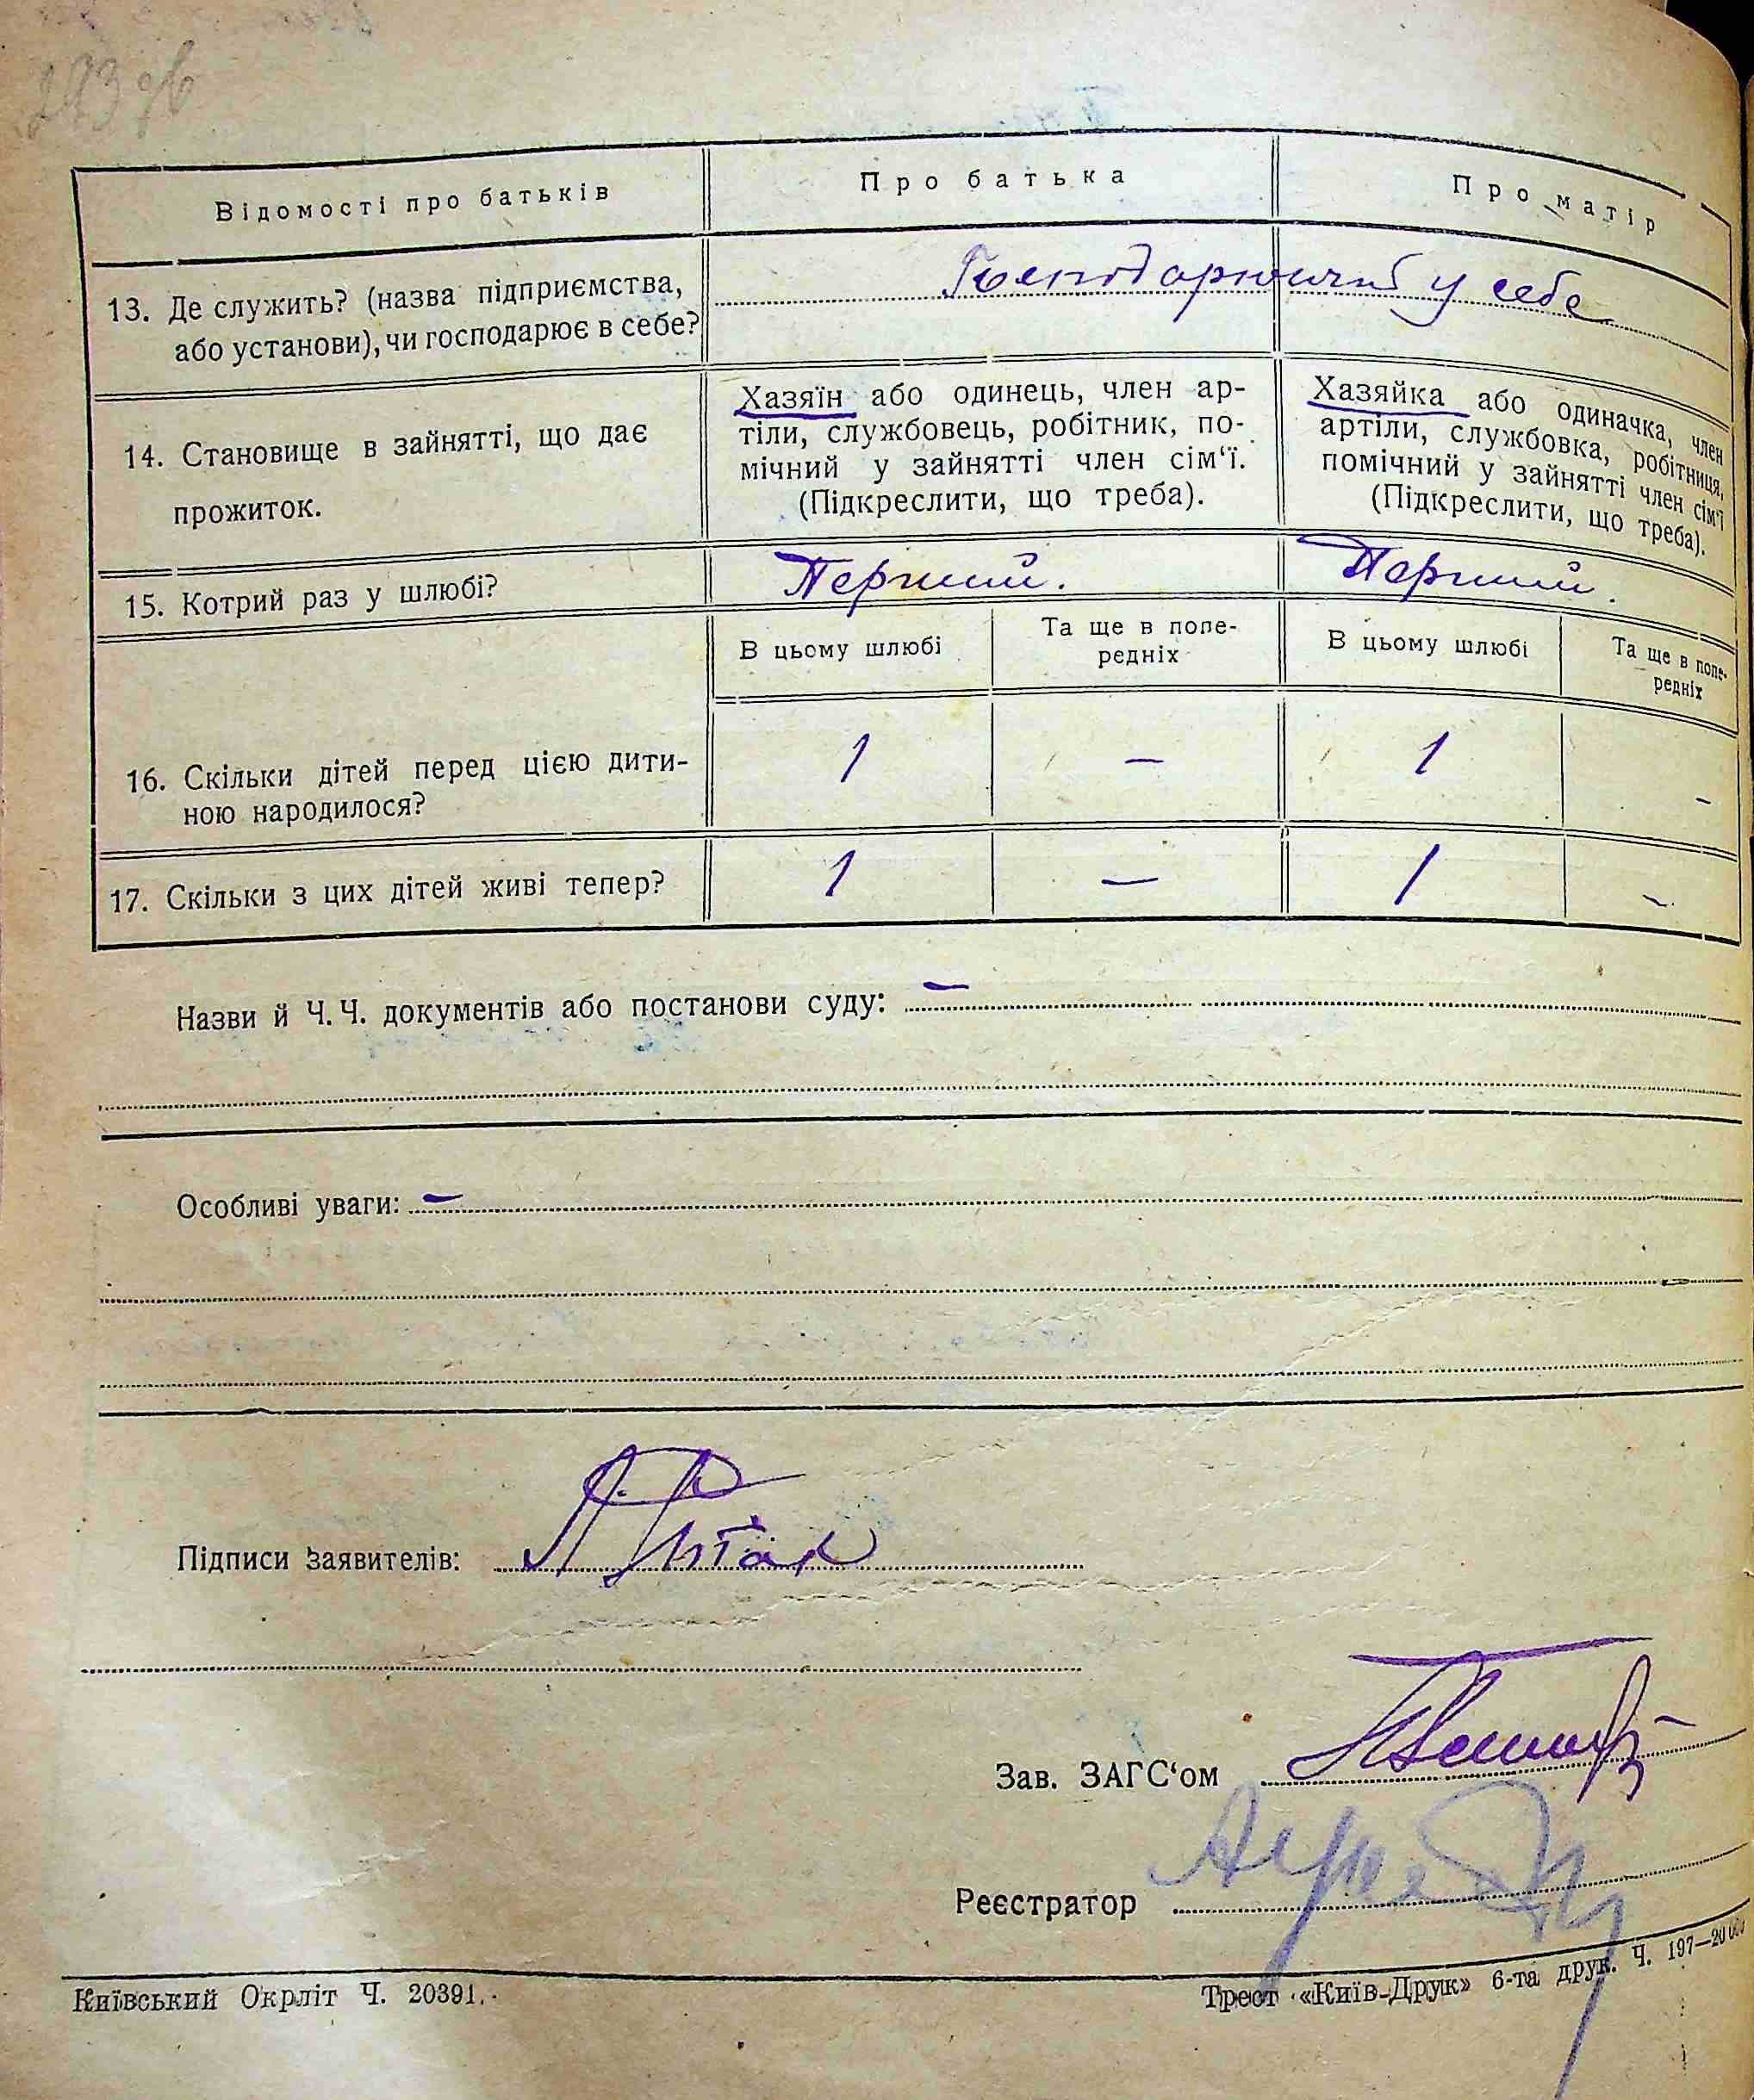 Відомості про батьків
Про батька
Про матір
13. Де служить? (назва підприємства,
або установи), чи господарює в себе?
у себе
14. Становище в зайнятті, що дає
прожиток.
Хазяїн або одинець, член ар-
тіли, службовець, робітник, по-
мічний у зайнятті член сім‘ї.
(Підкреслити, що треба).
Хазяйка або одиначка, член
артіли, службовка, робітниця,
помічний у зайнятті член сім‘ї
(Підкреслити, що треба).
15. Котрий раз у шлюбі?
Перший.
Перший.
В цьому шлюбі
Та ще в попе-
редніх
В цьому шлюбі
Та ще в попе-
редніх
16. Скільки дітей перед цією дити-
ною народилося?
1 — 1 –
17. Скільки з цих дітей живі тепер?
1 — 1 –
Назви й Ч. Ч. документів або постанови суду: —
Особливі уваги: —
Підписи заявителів:
Зав. ЗАГС‘ом
Реєстратор
Київський Окрліт Ч. 20391.
Трест «Київ-Друк» 6-та друк. Ч. 197—20000